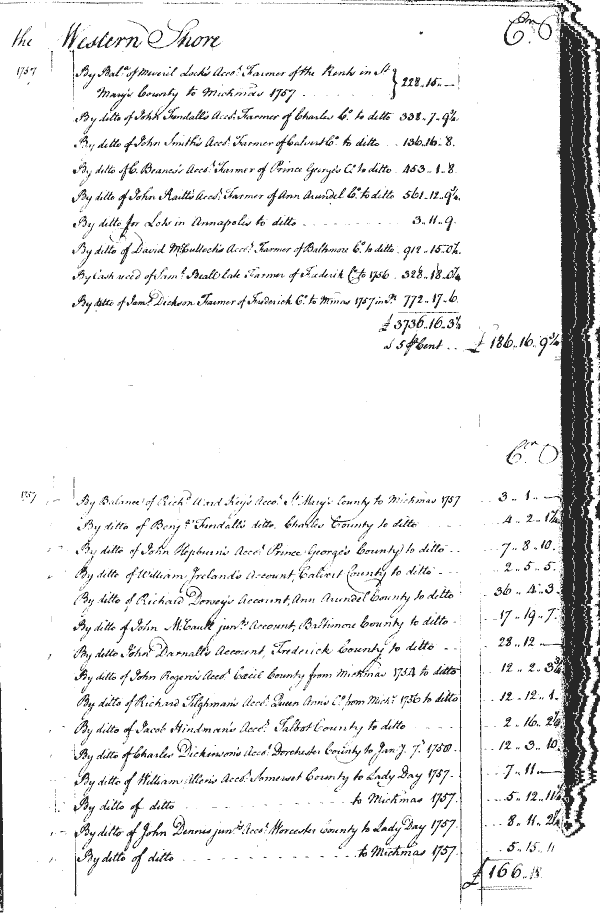 the Western Shore Cr.
1757 By Bal.ce of Meveril Lock's Acco.t Farmer of the Rents in S.t
Mary's County to Mickmas 1757 } 228.15.—
By ditto of John Tendall's Acco.t Farmer of Charles C.o to ditto 338.7.9½
By ditto of John Smith's Acco.t Farmer of Calvert C.o to ditto 136.16.8.
By ditto of C. Beanes's Acco.t Farmer of Prince George's C.o to ditto 453.1.8
By ditto of John Raitt's Acco.t Farmer of Ann Arundel C.o to ditto 561.12.9½
By ditto for Lots in Annapolis to ditto 3.11.9.
By ditto of David McCulloch's Acco.t Farmer of Baltimore C.o to ditto 912.15.0½
By Cash reced of Sam.l Beall late Farmer of Frederick C.o to 1756 328.18.0¼
By ditto of Jam.s Dickson Farmer of Frederick C.o to Mickmas 1757 in P.t 772.17.6
£ 3736.16.3¼
a 5 P Cent £ 186.16.9¾
Cr.
1757 By Balance of Rich.d Ward Key's Acco.t St. Mary's County to Mickmas 1757 3.1.—
By ditto of Benj.n Tendall's ditto Charles County to ditto 4.2.1¼
By ditto of John Hepburn's Acco.t Prince George's County to ditto 7.8.10.
By ditto of William Ireland's Account, Calvert County to ditto 2.5.5.
By ditto of Richard Dorsey's Account, Ann Arundel County to ditto 36.4.3
By ditto of John McCaull jun.rs Account, Baltimore County to ditto 17.19.7
By ditto John Darnall's Account, Frederick County to ditto 28.12.—
By ditto of John Rogers's Acco.t Cecil County from Mickmas 1754 to ditto 12.2.3¾
By ditto of Richard Tilghman's Acco.t Queen Ann's C.o from Mich.s 1756 to ditto 12.12.1
By ditto of Jacob Hindman's Acco.t Talbot County to ditto 2.16.2½
By ditto of Charles Dickinson's Acco.t Dorchester County to Jan.y 7.th 1758 12.3.10
By ditto of William Allen's Acco.t Somerset County to Lady Day 1757 7.11.—
By ditto of ditto to Mickmas 1757 5.12.11½
By ditto of John Dennis jun.rs Acco.t Worcester County to Lady Day 1757 8.11.2½
By ditto of ditto to Mickmas 1757 5.15.11
£ 166.18.